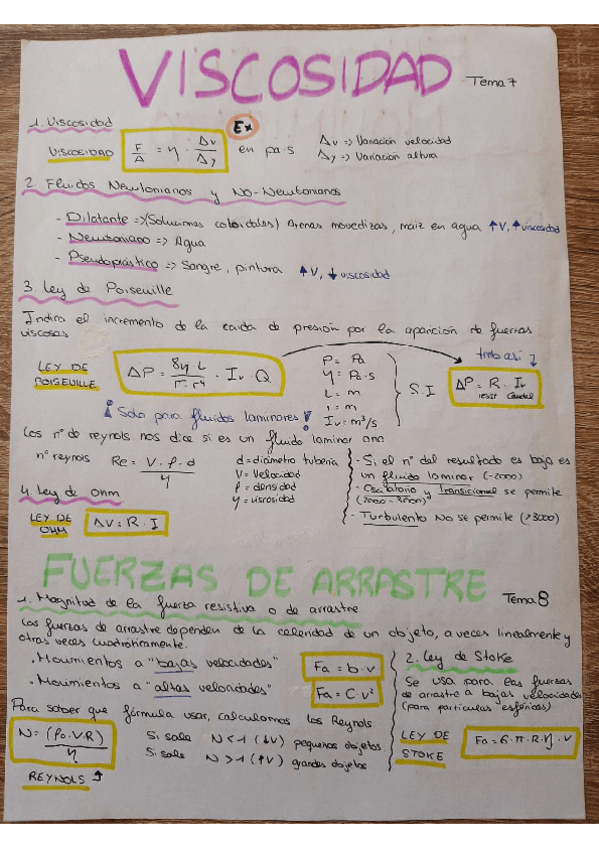 VISCOSIDAD Tema 7
1. Viscosidad
Ex
VISCOSIDAD F/A = η · Δv/Δy en pa·s
Δv => Variación velocidad
Δy => Variación altura
2. Fluidos Newtonianos y No-Newtonianos
- Dilatante => (Soluciones coloidales) Arenas movedizas, maiz en agua ↑V, ↑viscosidad
- Newtoniano => Agua
- Pseudoplástico => Sangre, pintura ↑V, ↓viscosidad
3. Ley de Poiseuille
Indica el incremento de la caida de presión por la aparición de fuerzas
viscosas
LEY DE
POISEUILLE
ΔP = 8η·L/π·r⁴ · Iv · Q
P = Pa
η = Pa·s
L = m
r = m
Iv = m³/s
S.I
ΔP = R · Iv
caudal
¡Solo para fluidos laminares!
Los nº de reynols nos dice si es un fluido laminar
nº reynols Re = V·ρ·d/η
d = diámetro tubería
V = Velocidad
ρ = densidad
η = viscosidad
- Si el nº del resultado es bajo es
un fluido laminar (-2000)
y Transicional se permite
(2000 - 3000)
- Turbulento No se permite (>3000)
4. Ley de Ohm
LEY DE
OHM
ΔV = R · I
FUERZAS DE ARRASTRE Tema 8
1. Magnitud de la fuerza resistiva o de arrastre
Las fuerzas de arrastre dependen de la celeridad de un objeto, a veces linealmente y
otras veces cuadráticamente.
· Movimientos a "bajas velocidades" Fa = b·v
· Movimientos a "altas velocidades" Fa = C·v²
Para saber que fórmula usar, calculamos los Reynols
N = (ρo·V·R)/η
REYNOLS ↑
Si sale N<1 (↓V) pequeños objetos
Si sale N>1 (↑V) grandes objetos
2. Ley de Stoke
Se usa para las fuerzas
de arrastre a bajas velocidades
(para partículas esféricas)
LEY DE
STOKE
Fa = 6·π·R·η·v